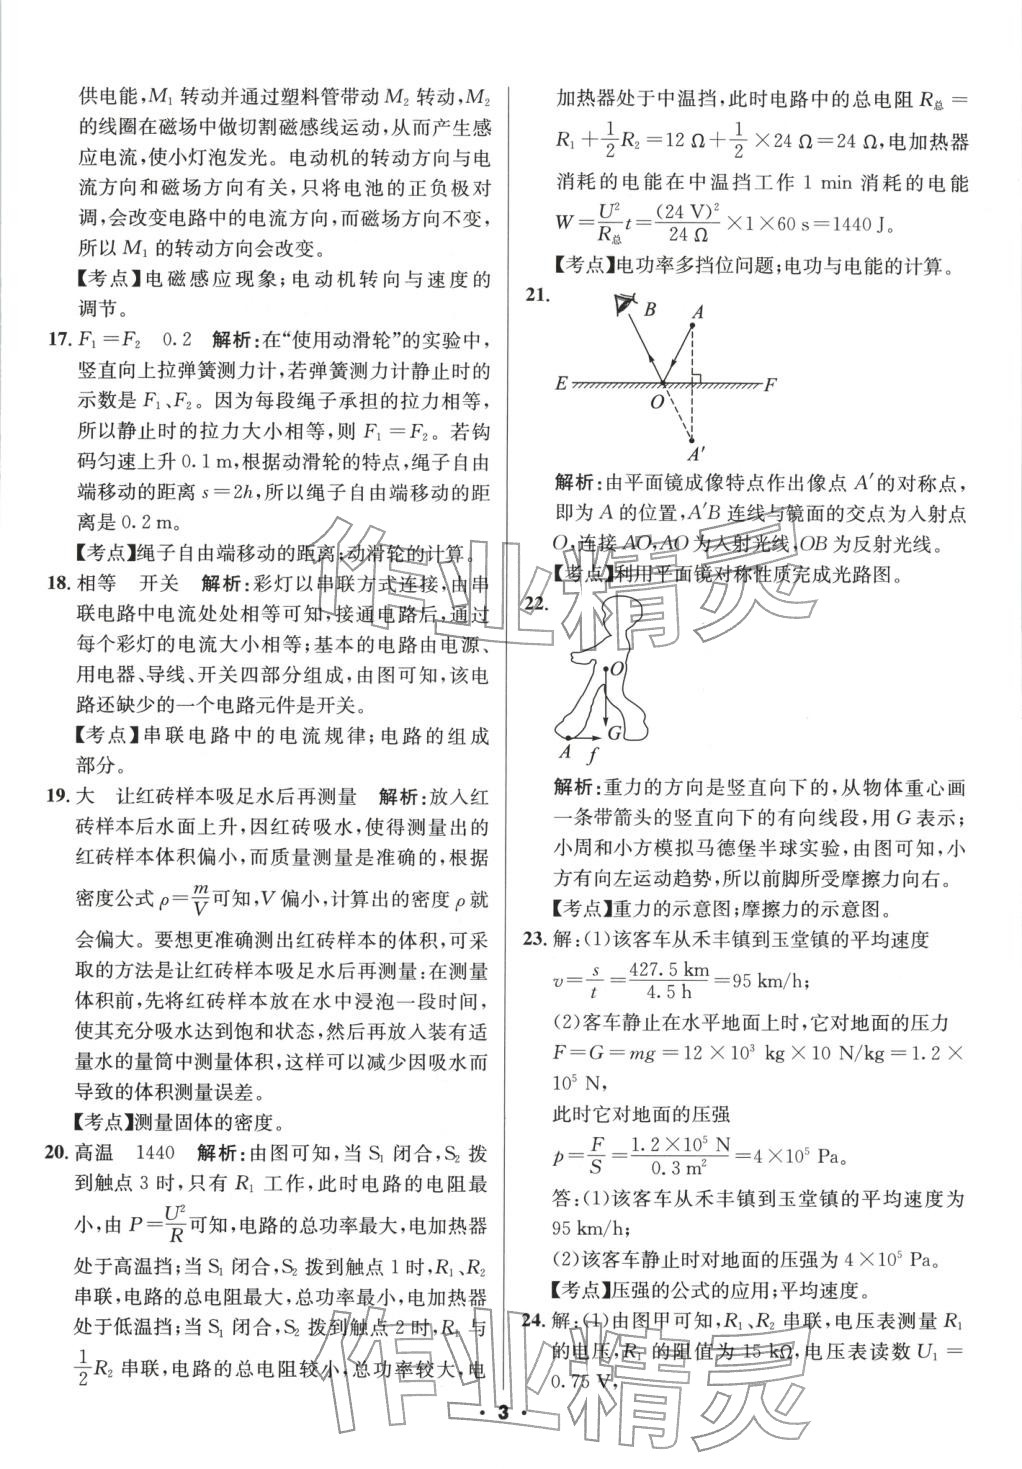 供电能,M₁ 转动并通过塑料管带动 M₂ 转动,M₂
的线圈在磁场中做切割磁感线运动,从而产生感
应电流,使小灯泡发光。电动机的转动方向与电
流方向和磁场方向有关,只将电池的正负极对
调,会改变电路中的电流方向,而磁场方向不变,
所以 M₁ 的转动方向会改变。
【考点】电磁感应现象;电动机转向与速度的
调节。
17. F₁=F₂ 0.2 解析:在“使用动滑轮”的实验中,
竖直向上拉弹簧测力计,若弹簧测力计静止时的
示数是 F₁、F₂。因为每段绳子承担的拉力相等,
所以静止时的拉力大小相等,则 F₁=F₂。若钩
码匀速上升 0.1 m,根据动滑轮的特点,绳子自由
端移动的距离 s=2h,所以绳子自由端移动的距
离是 0.2 m。
【考点】绳子自由端移动的距离;动滑轮的计算。
18. 相等 开关 解析:彩灯以串联方式连接,由串
联电路中电流处处相等可知,接通电路后,通过
每个彩灯的电流大小相等;基本的电路由电源、
用电器、导线、开关四部分组成,由图可知,该电
路还缺少的一个电路元件是开关。
【考点】串联电路中的电流规律;电路的组成
部分。
19. 大 让红砖样本吸足水后再测量 解析:放入红
砖样本后水面上升,因红砖吸水,使得测量出的
红砖样本体积偏小,而质量测量是准确的,根据
密度公式 ρ=m/V可知,V 偏小,计算出的密度 ρ 就
会偏大。要想更准确测出红砖样本的体积,可采
取的方法是让红砖样本吸足水后再测量:在测量
体积前,先将红砖样本放在水中浸泡一段时间,
使其充分吸水达到饱和状态,然后再放入装有适
量水的量筒中测量体积,这样可以减少因吸水而
导致的体积测量误差。
【考点】测量固体的密度。
20. 高温 1440 解析:由图可知,当 S₁ 闭合,S₂ 拨
到触点 3 时,只有 R₁ 工作,此时电路的电阻最
小,由 P=U²/R可知,电路的总功率最大,电加热器
处于高温挡;当 S₁ 闭合,S₂ 拨到触点 1 时,R₁、R₂
串联,电路的总电阻最大,总功率最小,电加热器
处于低温挡;当 S₁ 闭合,S₂ 拨到触点 2 时,R₁ 与
1/2 R₂ 串联,电路的总电阻较小,总功率较大,电
加热器处于中温挡,此时电路中的总电阻 R总=
R₁+1/2 R₂=12 Ω+1/2×24 Ω=24 Ω,电加热器
消耗的电能在中温挡工作 1 min 消耗的电能
W=U²/R总 t=(24 V)²/24 Ω×1×60 s=1440 J。
【考点】电功率多挡位问题;电功与电能的计算。
21.
B A
E O F
A′
解析:由平面镜成像特点作出像点 A′的对称点,
即为 A 的位置,A′B 连线与镜面的交点为入射点
O,连接 AO,AO 为入射光线,OB 为反射光线。
【考点】利用平面镜对称性质完成光路图。
22.
O
G
A f
解析:重力的方向是竖直向下的,从物体重心画
一条带箭头的竖直向下的有向线段,用 G 表示;
小周和小方模拟马德堡半球实验,由图可知,小
方有向左运动趋势,所以前脚所受摩擦力向右。
【考点】重力的示意图;摩擦力的示意图。
23. 解:(1)该客车从禾丰镇到玉堂镇的平均速度
v=s/t=427.5 km/4.5 h=95 km/h;
(2)客车静止在水平地面上时,它对地面的压力
F=G=mg=12×10³ kg×10 N/kg=1.2×
10⁵ N,
此时它对地面的压强
p=F/S=1.2×10⁵ N/0.3 m²=4×10⁵ Pa。
答:(1)该客车从禾丰镇到玉堂镇的平均速度为
95 km/h;
(2)该客车静止时对地面的压强为 4×10⁵ Pa。
【考点】压强的公式的应用;平均速度。
24. 解:(1)由图甲可知,R₁、R₂ 串联,电压表测量 R₁
的电压,R₁ 的阻值为 15 kΩ,电压表读数 U₁=
0.75 V,
· 3 ·
作业精灵
作业精灵